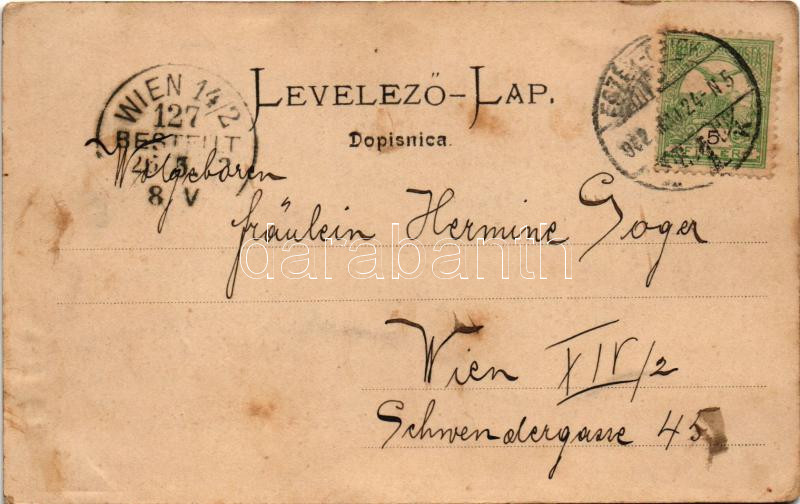 LEVELEZŐ-LAP.
Dopisnica.
WIEN 14/2
127
BESTELLT
8 V
ESZÉK
902
24 N5
5
Wolgeboren
fräulein Hermine Goger
darabanth
Wien XIV/2
Schwendergasse 45